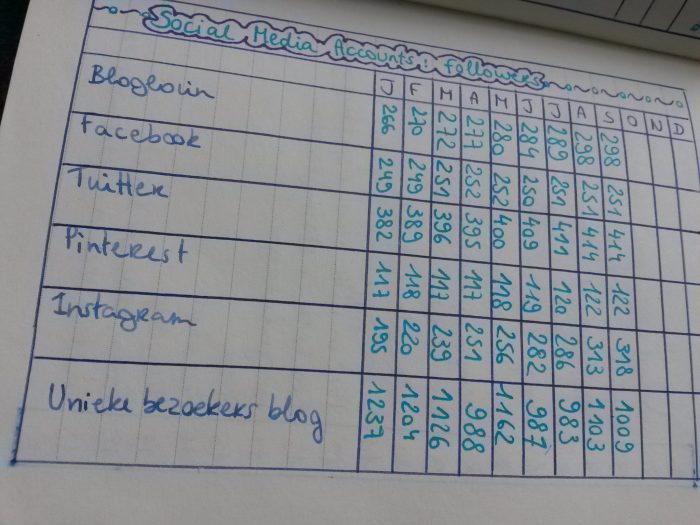 Social Media Accounts: followers
J F M A M J J A S O N D
Bloglovin 266 270 272 277 280 284 289 298 298
Facebook 249 249 251 252 252 250 251 251 251
Twitter 382 389 396 395 400 409 411 414 414
Pinterest 117 118 117 117 118 119 120 122 122
Instagram 195 220 239 251 256 282 286 313 318
Unieke bezoekers blog 1237 1204 1126 988 1162 987 983 1103 1009